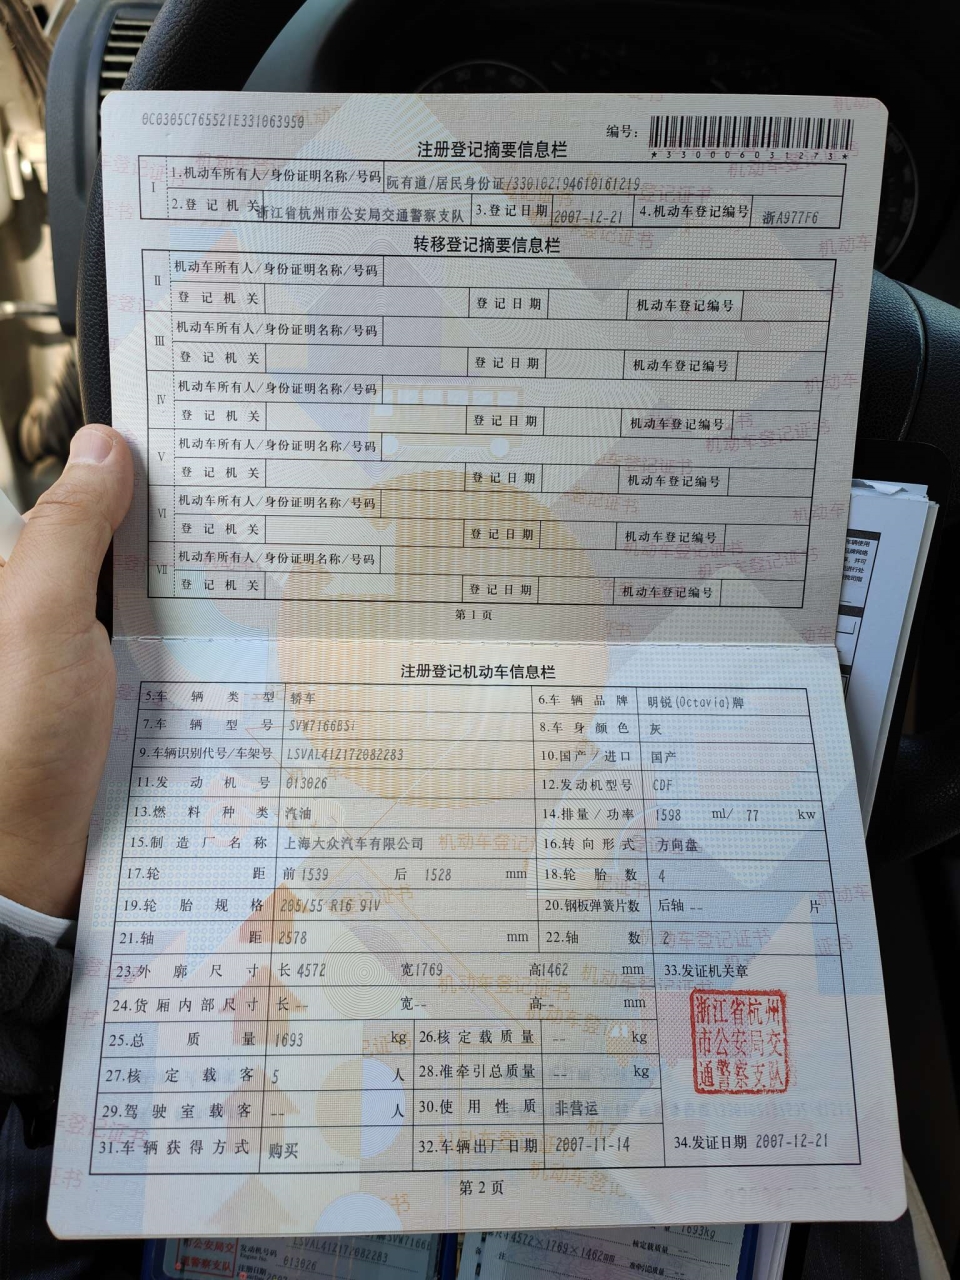 0C0305C765521E331063950
编号:
*330006031273*
注册登记摘要信息栏
I
1.机动车所有人/身份证明名称/号码 阮有道/居民身份证/330102194610161219
2.登记机关 浙江省杭州市公安局交通警察支队 3.登记日期 2007-12-21 4.机动车登记编号 浙A977F6
转移登记摘要信息栏
II
机动车所有人/身份证明名称/号码
登记机关 登记日期 机动车登记编号
III
机动车所有人/身份证明名称/号码
登记机关 登记日期 机动车登记编号
IV
机动车所有人/身份证明名称/号码
登记机关 登记日期 机动车登记编号
V
机动车所有人/身份证明名称/号码
登记机关 登记日期 机动车登记编号
VI
机动车所有人/身份证明名称/号码
登记机关 登记日期 机动车登记编号
VII
机动车所有人/身份证明名称/号码
登记机关 登记日期 机动车登记编号
第1页
注册登记机动车信息栏
5.车辆类型 轿车 6.车辆品牌 明锐(Octavia)牌
7.车辆型号 SVW7166BSi 8.车身颜色 灰
9.车辆识别代号/车架号 LSVAL412172082283 10.国产/进口 国产
11.发动机号 013026 12.发动机型号 CDF
13.燃料种类 汽油 14.排量/功率 1598 ml/ 77 kw
15.制造厂名称 上海大众汽车有限公司 16.转向形式 方向盘
17.轮距 前 1539 后 1528 mm 18.轮胎数 4
19.轮胎规格 205/55 R16 91V 20.钢板弹簧片数 后轴 -- 片
21.轴距 2578 mm 22.轴数 2
23.外廓尺寸 长 4572 宽1769 高1462 mm 33.发证机关章
24.货厢内部尺寸 长 -- 宽-- 高-- mm
浙江省杭州
市公安局交
通警察支队
25.总质量 1693 kg 26.核定载质量 -- kg
27.核定载客 5 人 28.准牵引总质量 -- kg
29.驾驶室载客 -- 人 30.使用性质 非营运
31.车辆获得方式 购买 32.车辆出厂日期 2007-11-14 34.发证日期 2007-12-21
第2页
市公安局交
警察支队
发动机号码
LSVAL412172082283
013026
4572×1769×1462
核定载质量 --
1693kg